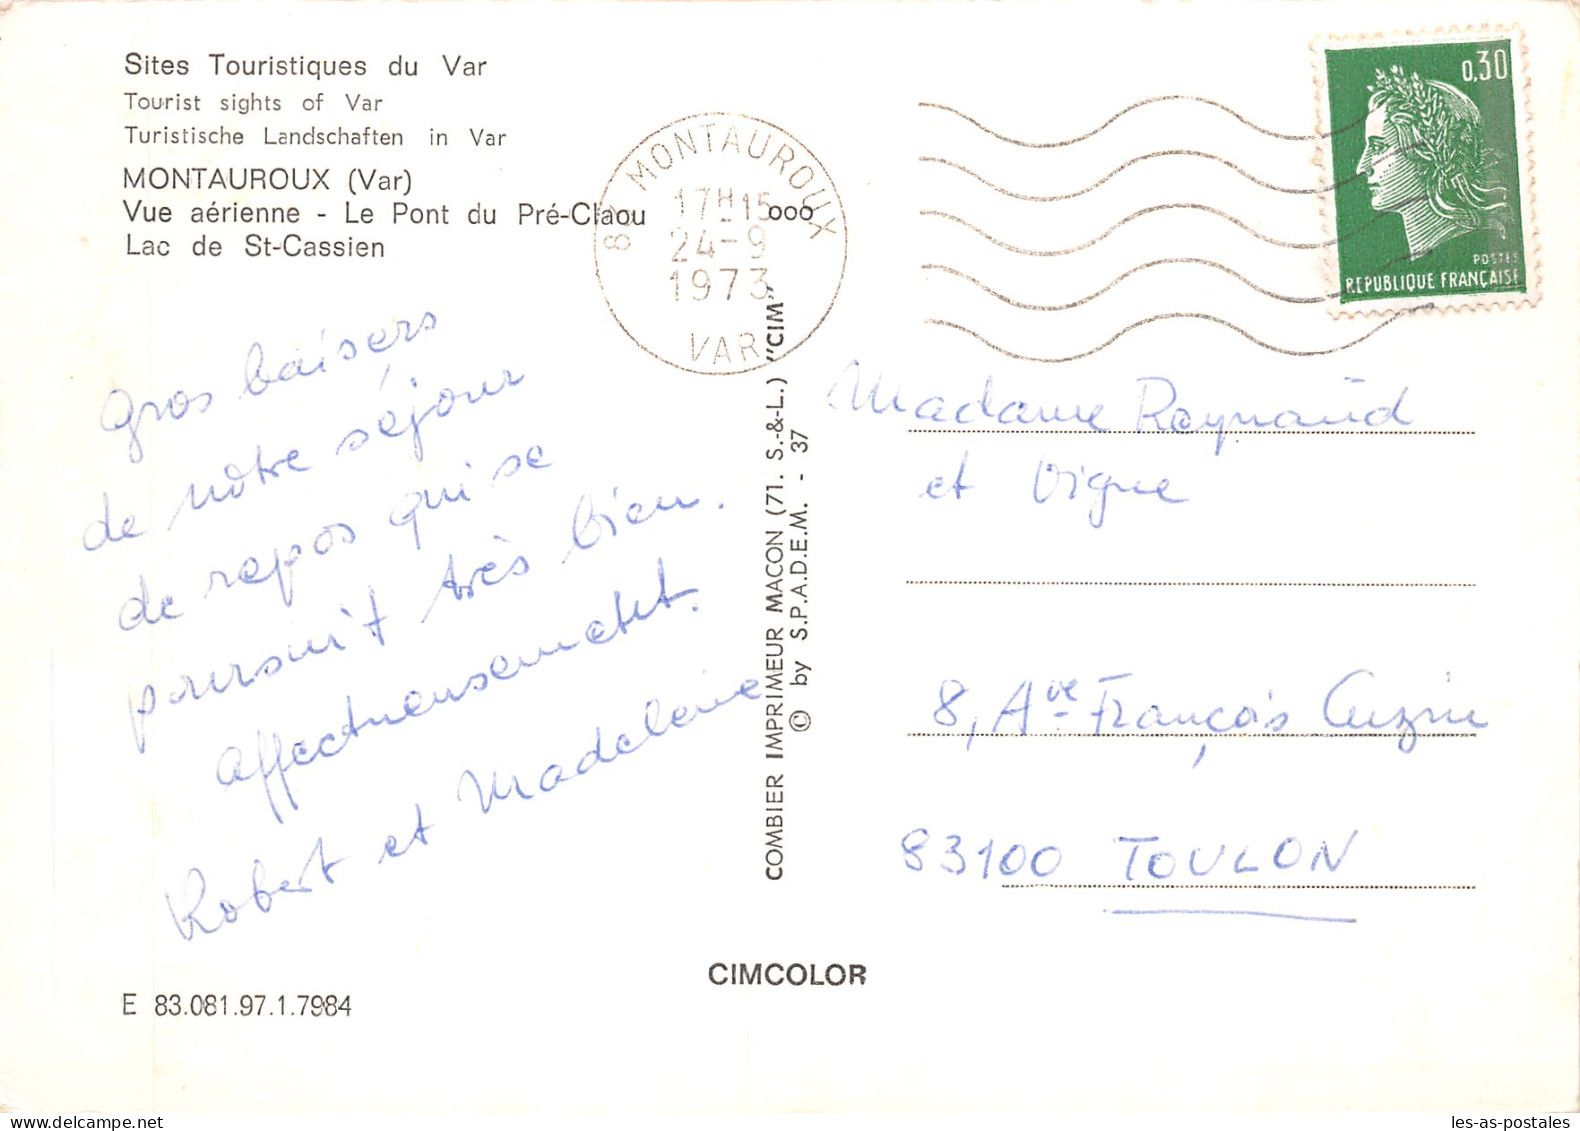 Sites Touristiques du Var
Tourist sights of Var
Turistische Landschaften in Var
MONTAUROUX (Var)
Vue aérienne - Le Pont du Pré-Claou
Lac de St-Cassien
gros baisers
de notre séjour
de repos qui se
poursuit très bien.
Affectueusement.
Robert et Madeleine
E 83.081.97.1.7984
83 MONTAUROUX
17H15
24-9
1973
VAR
000
COMBIER IMPRIMEUR MACON (71. S.-&-L.) "CIM"
© by S.P.A.D.E.M. - 37
CIMCOLOR
0,30
POSTES
REPUBLIQUE FRANÇAISE
Madame Raynaud
et Vigne
8, Ave François Cuzin
83100 TOULON
les-as-postales